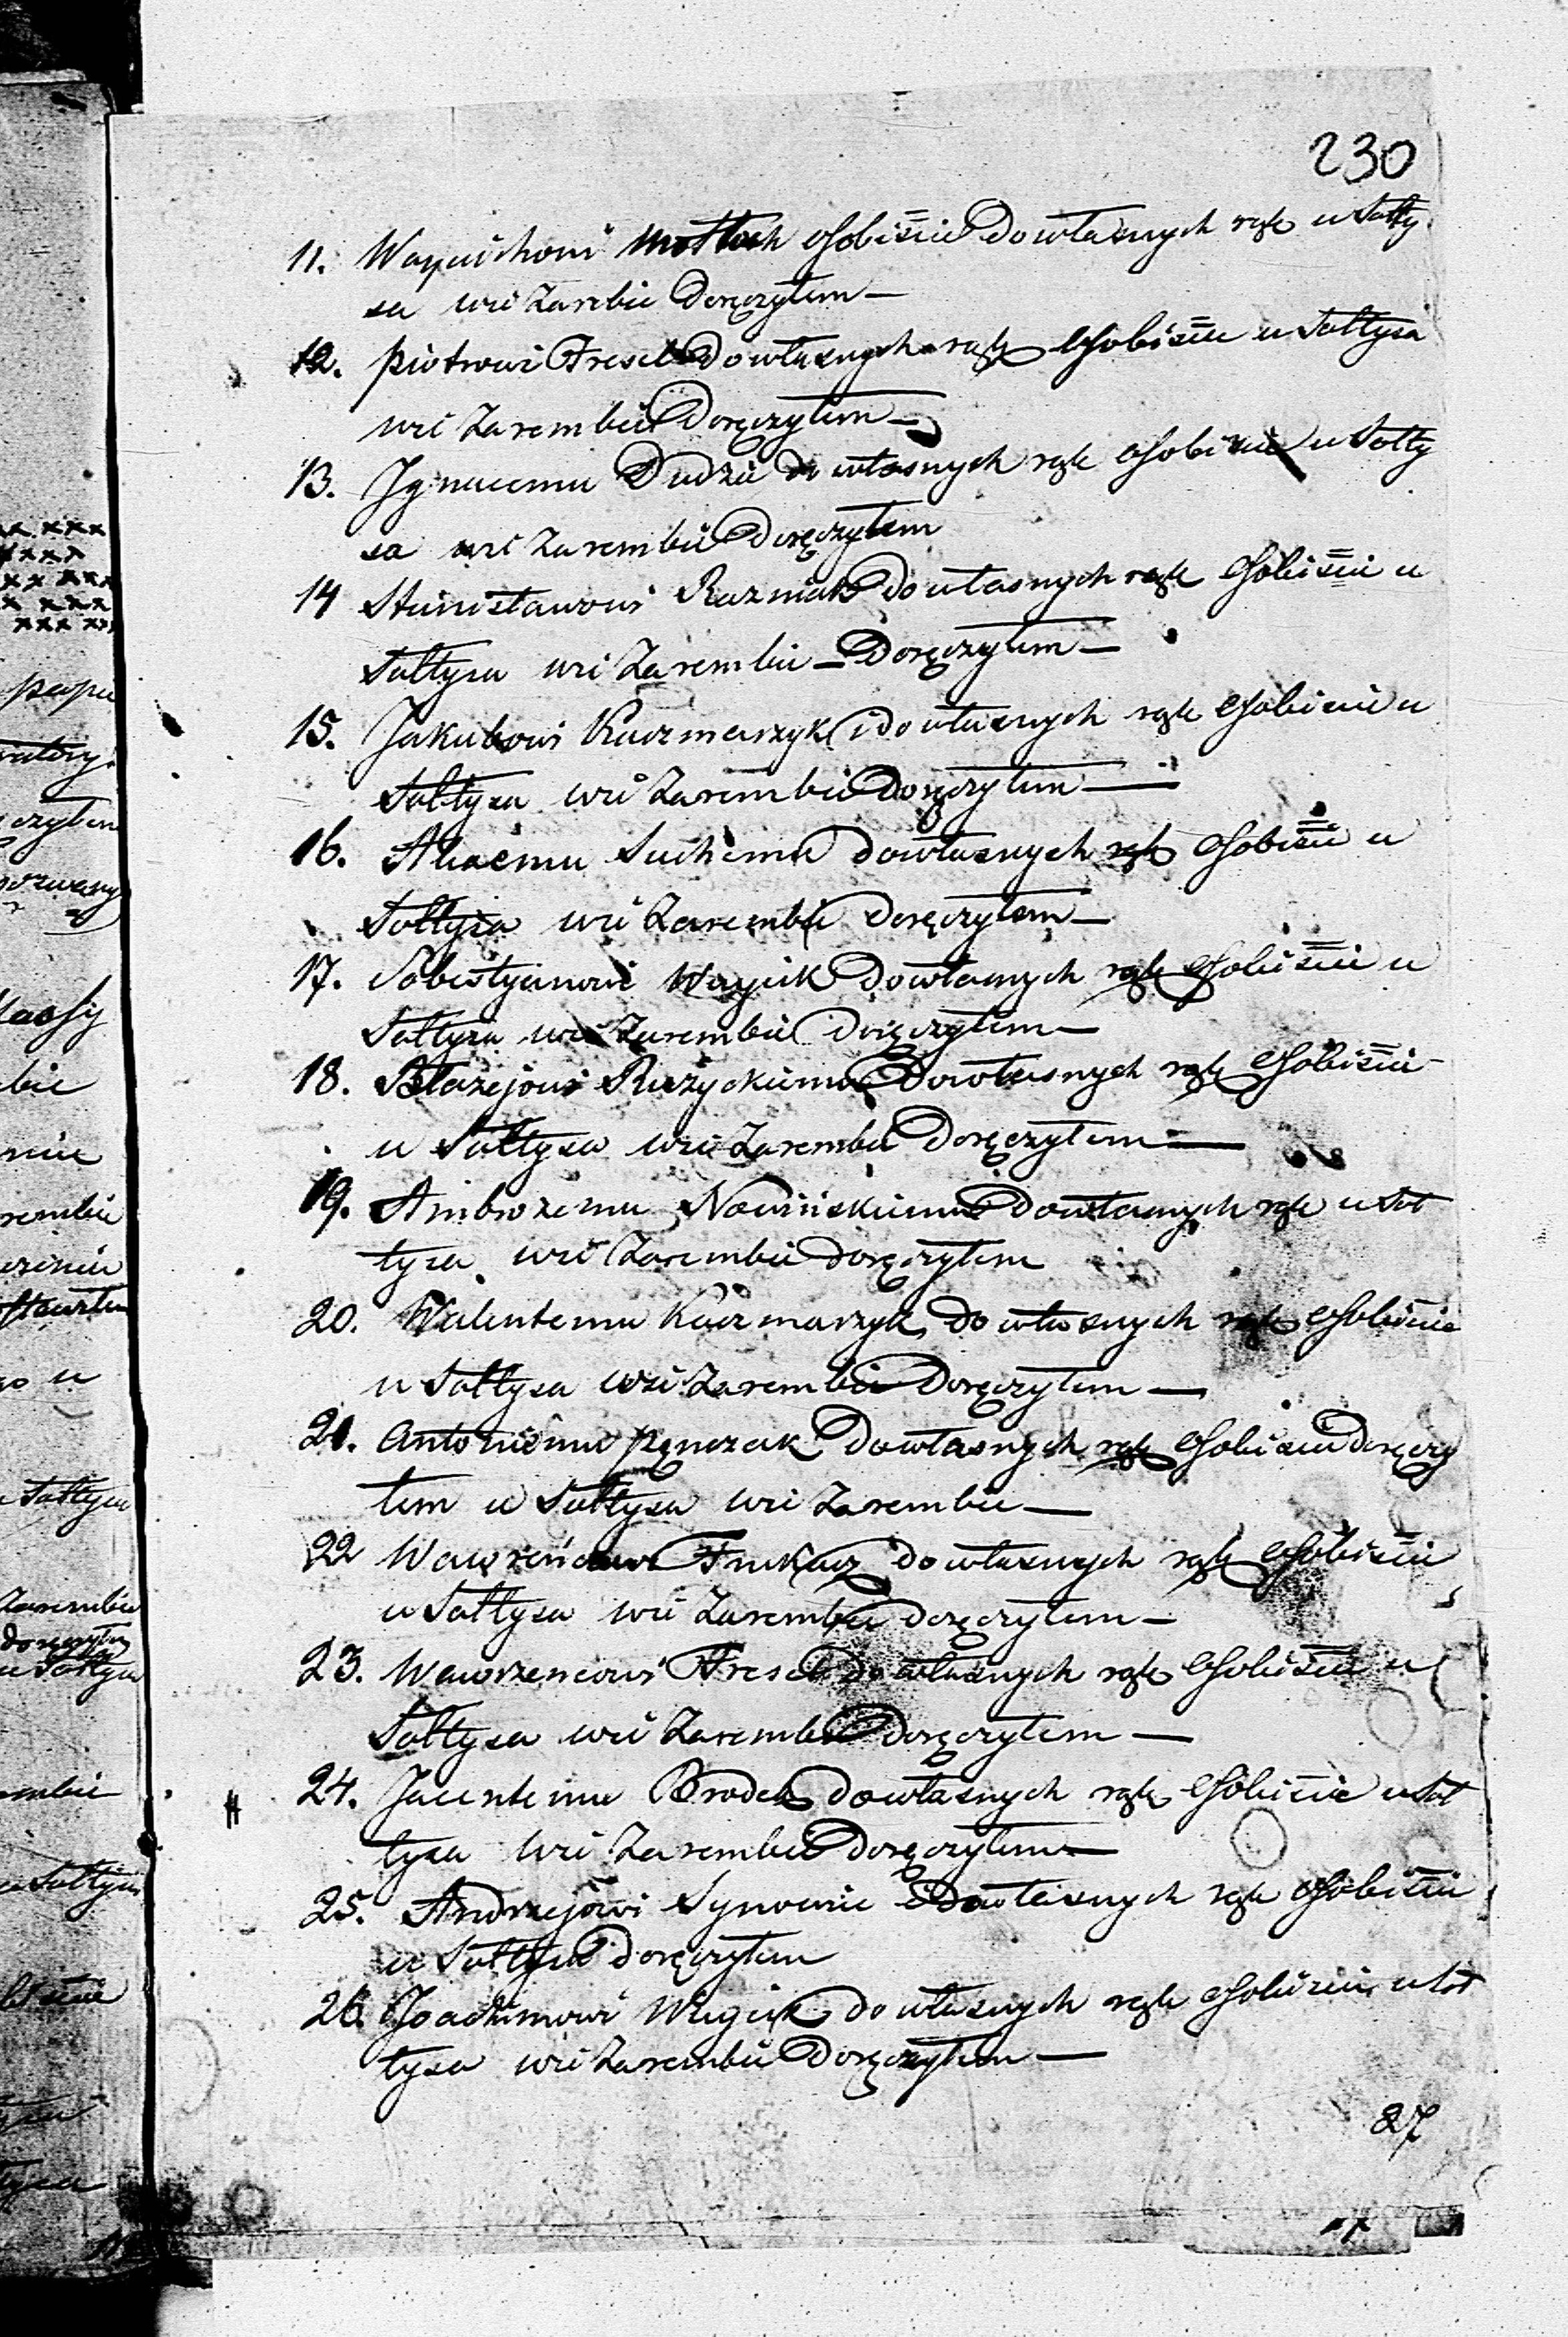 230
11. Woyciechowi Mottoch osobiście do własnych rąk u Sołty
sa wsi Zarebie doręczyłem —
12. Piotrowi Tresel do własnych rąk osobiście u Sołtysa
wsi Zarembie Doręczyłem —
13. Jgnacemu Dudzie do własnych rąk osobiscie u Sołty
sa wsi Zarembie Doręczyłem
14 Stanisławowi Razniak do własnych rąk osobiście u
Sołtysa wsi Zarembie — Doręczyłem —
15. Jakubowi Kaczmarzyk do własnych rąk osobiscie u
Sołtysa wsi Zarembie Doręczyłem —
16. Suchemu do własnych rąk osobiście u
Sołtysa wsi Zarembie doręczyłem —
17. Sobestyanowi Woycik do własnych rąk osobiście u
Sołtysa wsi Zarembie doręczyłem —
18. Błazejowi Ruzyckiemu do własnych rąk osobiście
u Sołtysa wsi Zarembie Doręczyłem —
19. Ambrozemu Nowińskiemu do własnych rąk u Soł
tysa wsi Zarembie doręczyłem
20. Walentemu Kaczmarzyk do własnych rąk osobiście
u Sołtysa wsi Zarembie Doręczyłem —
21. Antoniemu Pęnczak do własnych rąk osobiscie doręczy
łem u Sołtysa wsi Zarembie —
22 Wawrzeńcowi do własnych rąk osobiście
u Sołtysa wsi Zarembie doręczyłem —
23. Wawrzencowi Tresel do własnych rąk osobiście u
Sołtysa wsi Zarembie doręczyłem —
24. Jacentemu Brodek do własnych rąk osobiście u Soł
tysa wsi Zarembie Doręczyłem —
25. Andrzejowi Synowie do własnych rąk osobiście
u Sołtysa doręczyłem
26. Joachimowi Wugik do własnych rąk osobiscie u Soł
tysa wsi Zarembie Doręczyłem —
27